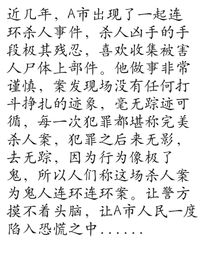 近几年，A市出现了一起连
环杀人事件，杀人凶手的手
段极其残忍，喜欢收集被害
人尸体上部件。他做事非常
谨慎，案发现场没有任何打
斗挣扎的迹象，毫无踪迹可
循，每一次犯罪都堪称完美
杀人案，犯罪之后来无影，
去无踪，因为行为像极了
鬼，所以人们称这场杀人案
为鬼人连环连环案。让警方
摸不着头脑，让A市人民一度
陷入恐慌之中......